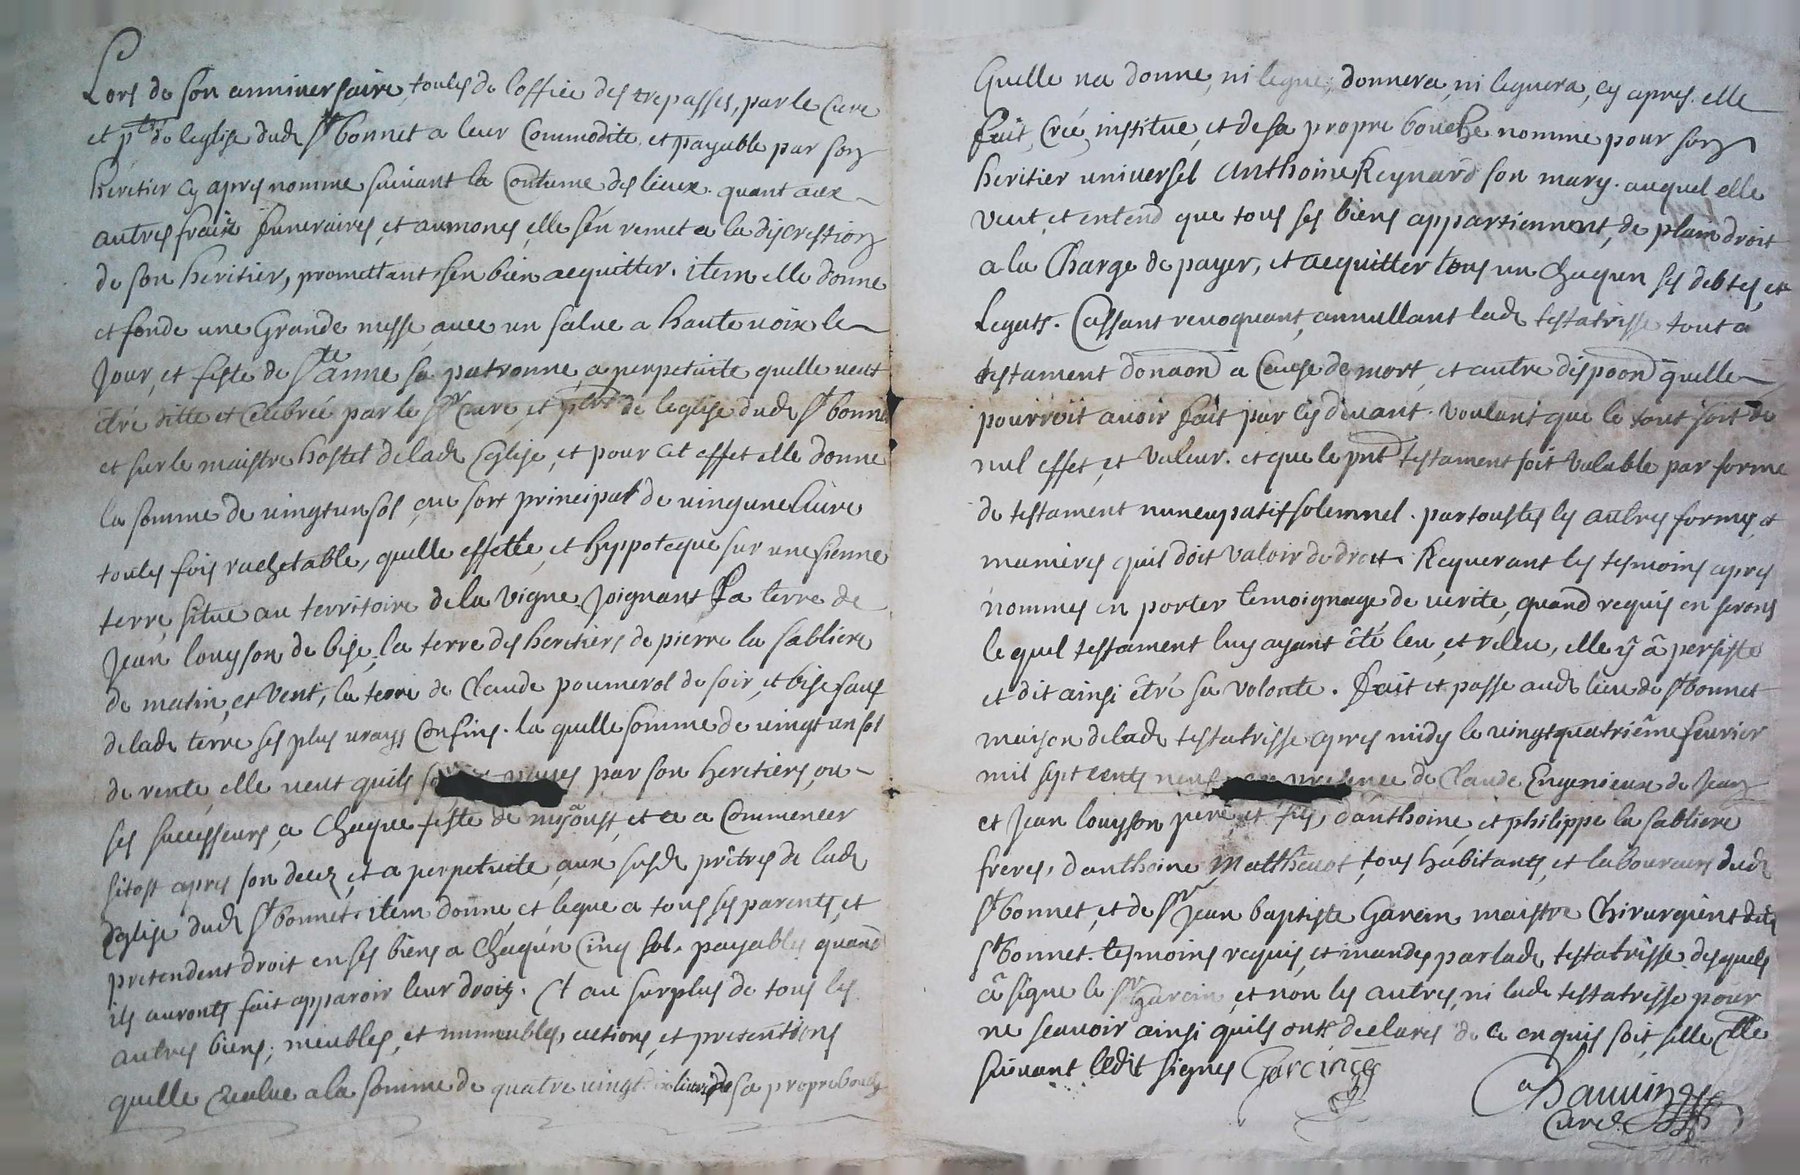 Lors de son anniversaire, toutes de l'office des trepasses, par le Cure
et ptres de leglise dudt St bonnet a leur Commodite et payable par son
heritier cy apres nomme suivant la Coutume des lieux. quant aux
autres fraix funeraires, et aumones, elle s'en remet a la discrestion
de son heritier, promettant s'en bien acquitter. item elle donne
et fonde une Grande messe avec un salve a haute voix le
Jour, et feste de Ste anne sa patronne, a perpetuite quelle veut
être ditte et Celebrée par le Sr Cure, et ptres de leglise dudt St bonnet
et sur le maistre hostel de ladt Eglise, et pour cet effet elle donne
la somme de vingt un sol, au sort principal de vingt une Livre
toutes fois rachetable, quelle effette, et hyppoteque sur une sienne
terre, situe au territoire de la Vigne Joignant La terre de
Jean louyson de bise, la terre des heritiers de pierre la sabliere
de matin, et Vent, la terre de Claude poumerol de soir, et bise sauf
de ladt terre ses plus vrays Confins. la quelle somme de vingt un sol
de rente, elle veut quils par son heretiers, ou
ses successeurs, a Chaque feste de mÿ oust, et a a Commencer
sitost apres son decez, et a perpetuite, aux susdt prêtres de ladt
Eglise dudt St bonnet. item donne et legue a tous ses parents, et
pretendent droit en ses biens a Chaqun Cinq sol. payables quand
ils auronts fait apparoir leur droit. Et au surplus de tous les
autres biens, meubles, et immeubles, actions, et pretentions
quelle evalue a la somme de quatre vingt livres sa propre bouche
Quelle na donne, ni legue, donnera, ni leguera, cy apres. elle
fait, Crée, institue, et de sa propre bouche nomme pour son
heritier universel Anthoine Reynard son mary. auquel elle
veut, et entend que tous ses biens appartiennent, de plain droit
a la Charge de payer, et acquitter tous un Chaqun ses debtes, et
Legats. Cassant revoquant, annullant ladt testatrisse tout a
testament donaond a Cause de mort, et autre dispoond quelle
pourroit avoir fait par cy devant. voulant que le tout soit de
nul effet, et Valeur. et que le pnt testament soit Valable par forme
de testament nuncupatif solemnel. par toustes les autres formes, et
manieres quil doit Valoir de droit. Requerant les tesmoins apres
nommes en porter temoignage de verite, quand requis en seronts
le quel testament luy ayant été leu, et releu, elle ÿ â persiste
et dit ainsi être sa volonte. fait et passe audt lieu de St bonnet
maison de ladt testatrisse apres midy le vingt quatrième fevrier
mil sept cents neuf presence de Claude Engenieux de Jean
et Jean louyson pere, et fils, d'anthoine, et philippe la sabliere
freres, d'anthoine Mathevot, tous habitants, et laboureurs dudt
St bonnet, et de Sr Jean baptiste Garcin maistre Chirurgient dudt
St bonnet. tesmoins requis, et mandes par ladt testatrisse. desquels
â signe le Sr Garcin, et non les autres, ni ladt testatrisse pour
ne scavoir ainsi quils ont declares de ce enquis soit, elle
suivant l'edit signes Garcin
Chauvin
Cure